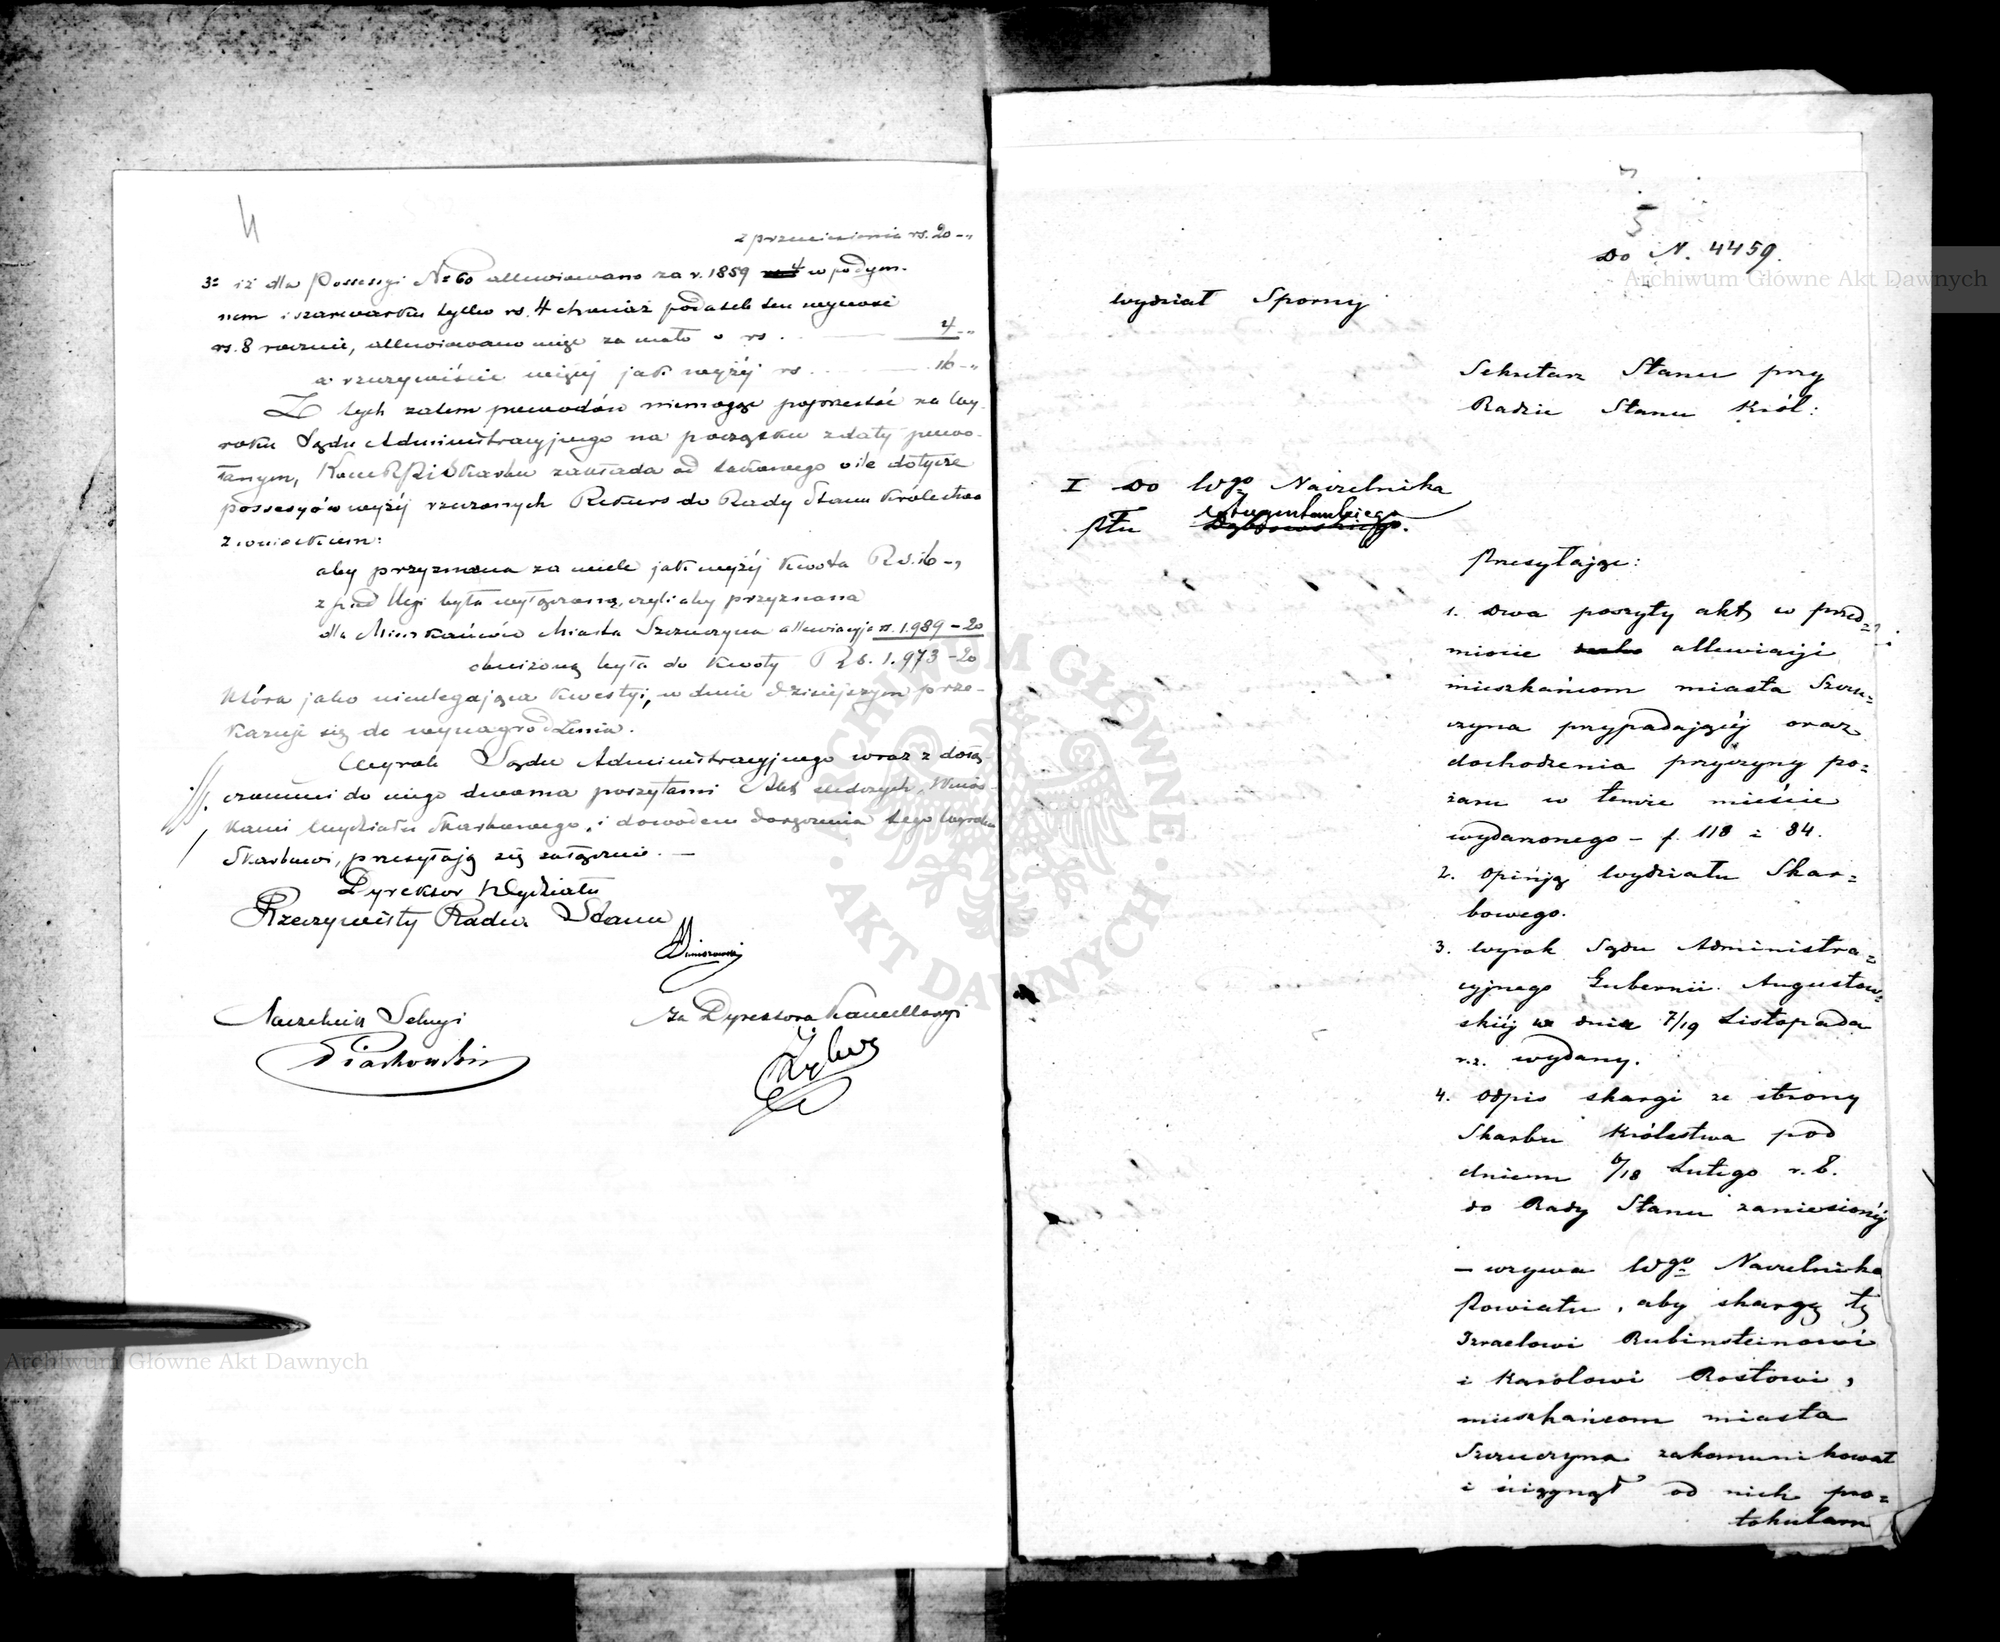 4
z przeniesienia rs. 20 -„
3º iż dla Possessyi Nº 60 allewiowano za r. 1859 w podym-
nem i szarwarku tylko rs. 4 chociaż podatek ten wynosi
rs. 8 rocznie, allewiowano więc za mało o rs . 4 -„
a rzeczywiście więcej jak wyżéj rs . 16 -„
Z tych zatem powodów niemogąc poprzestać na Wy-
roku Sądu Administracyjnego na początku z daty powo-
łanym, Kom: R. P. i Skarbu zakłada od takowego o ile dotycze
possesyów wyżéj rzeczonych Rekurs do Rady Stanu Królestwa
z wnioskiem:
aby przyznana za wiele jak wyżéj kwota Rs. 16 -„
z pod Ulgi była wyłączoną, czyli aby przyznana
dla Mieszkańców Miasta Szczuczyna allewiacyja rs. 1.989 - 20
zniżoną była do kwoty Rs. 1.973 - 20
która jako nieulegająca kwestyi, w dniu dzisiejszym prze-
kazuje się do wynagrodzenia.
Wyrok Sądu Administracyjnego wraz z dołą
czonemi do niego dwoma poszytami Akt śledczych, Wnios-
kami Wydziału Skarbowego, i dowodem doręczenia tego Wyroku
Skarbowi, przesyłają się załącznie. —
Dyrektor Wydziału
Rzeczywisty Radca Stanu
Naczelnik Sekcyi
Za Dyrektora Kancellaryi
Piaskowski
5
do N. 4459.
Archiwum Główne Akt Dawnych
Wydział Sporny
Sekretarz Stanu przy
Radzie Stanu Król:
I Do Wgo Naczelnika
Augustowskiego
Ptu Dąbrowskiego.
Przesyłając:
1. Dwa poszyty akt, w przed=
miocie allewiacyi
mieszkańcom miasta Szczu=
czyna przypadającéj oraz
dochodzenia przyczyny po=
żaru w temże mieście
wydarzonego – f. 118 i 84.
2. Opinją Wydziału Skar=
bowego.
3. Wyrok Sądu Administra=
cyjnego Gubernii Augustow=
skiéj w dniu 7/19 Listopada
r.z. wydany.
4. Odpis skargi ze strony
Skarbu Królestwa pod
dniem 6/18 Lutego r. b.
do Rady Stanu zaniesionéj
– wzywa Wgo Naczelnika
Powiatu, aby skargę tę
Izraelowi Rubinsteinowi
i Karolowi Rostowi,
mieszkańcom miasta
Szczuczyna zakomunikował
i ściągnął od nich pro=
tokularn
Archiwum Główne Akt Dawnych
ARCHIWUM GŁÓWNE · AKT DAWNYCH ·